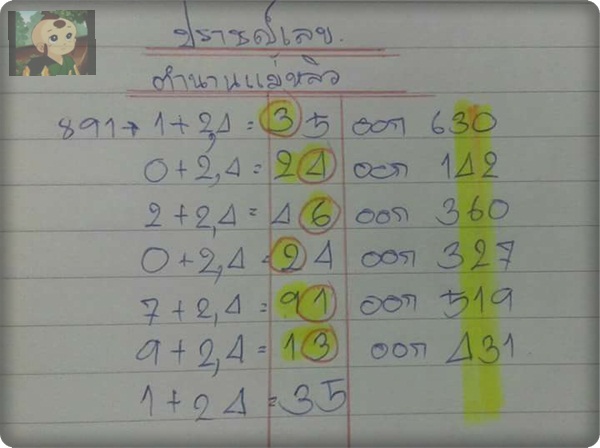 ปราชญ์เลข.
ตำนานแม่หลิว
891→ 1+2,4 = 35 ออก 630
0+2,4 = 24 ออก 142
2+2,4 = 46 ออก 360
0+2,4 = 24 ออก 327
7+2,4 = 91 ออก 519
9+2,4 = 13 ออก 431
1+24 = 35